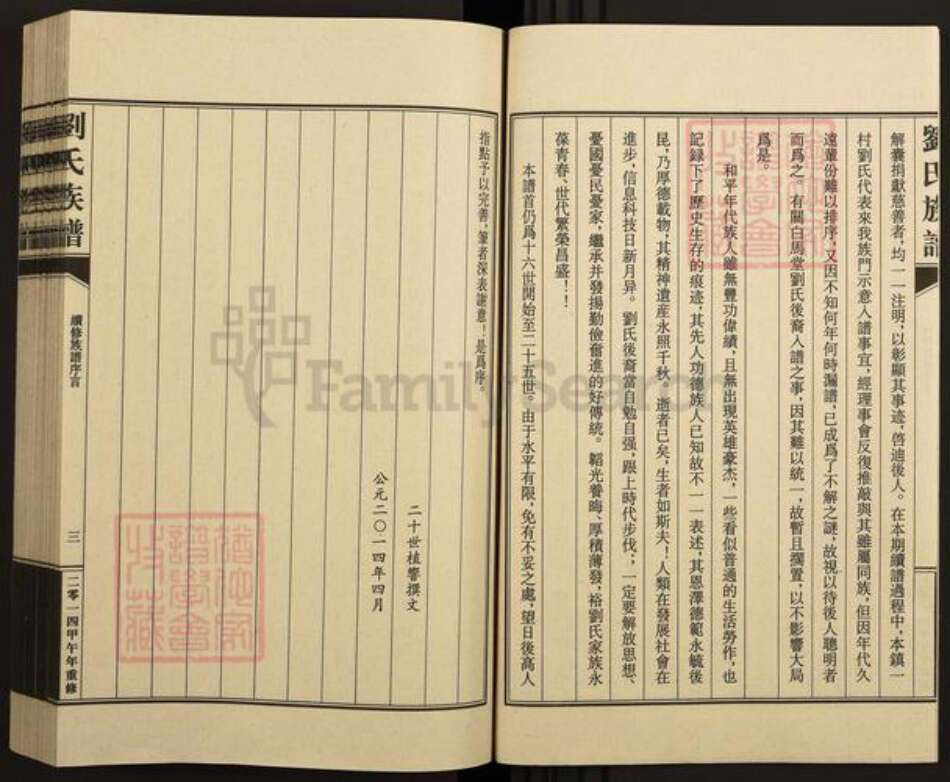 劉氏族譜
解囊捐獻慈善者，均一一注明，以彰顯其事迹，啓迪後人。在本期續譜過程中，本鎮一
村劉氏代表來我族門示意入譜事宜，經理事會反復推敲與其雖屬同族，但因年代久
遠輩份難以排序，又因不知何年何時漏譜，已成爲了不解之謎，故視以待後人聰明者
而爲之。有關白馬堂劉氏後裔入譜之事，因其難以統一，故暫且擱置，以不影響大局
爲是。
和平年代族人雖無豐功偉績，且無出現英雄豪杰，一些看似普通的生活勞作，也
記録下了歷史生存的痕迹，其先人功德族人已知故不一一表述，其恩澤德範永毓後
昆，乃厚德載物，其精神遺産永照千秋。逝者已矣，生者如斯夫！人類在發展社會在
進步，信息科技日新月异。劉氏後裔當自勉自强，跟上時代步伐，一定要解放思想、
憂國憂民憂家，繼承并發揚勤儉奮進的好傳統。韜光養晦、厚積薄發，裕劉氏家族永
葆青春、世代繁榮昌盛！！
本譜首仍爲十六世開始至二十五世。由于水平有限，免有不妥之處，望日後高人
指點予以完善，筆者深表謝意！是爲序。
二十世植響撰文
公元二〇一四年四月
劉氏族譜
續修族譜序言
三
二零一四甲午年重修
FamilySearch